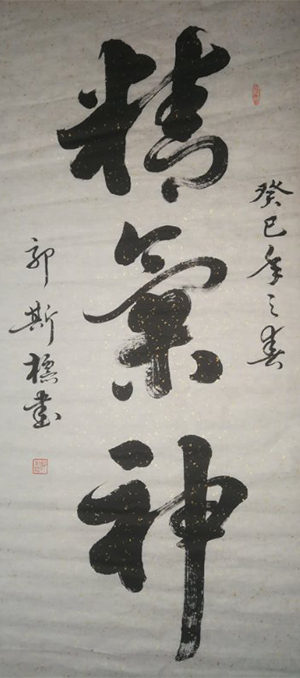 癸巳年之春
精氣神
郭斯標書